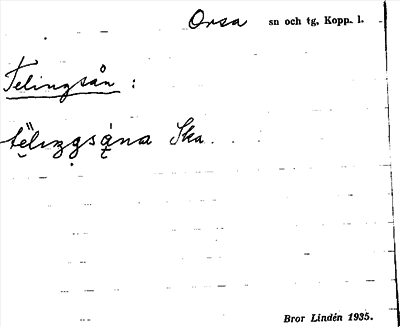 Orsa sn och tg, Kopp. l.
Telingsån :
Ska
Bror Lindén 1935.